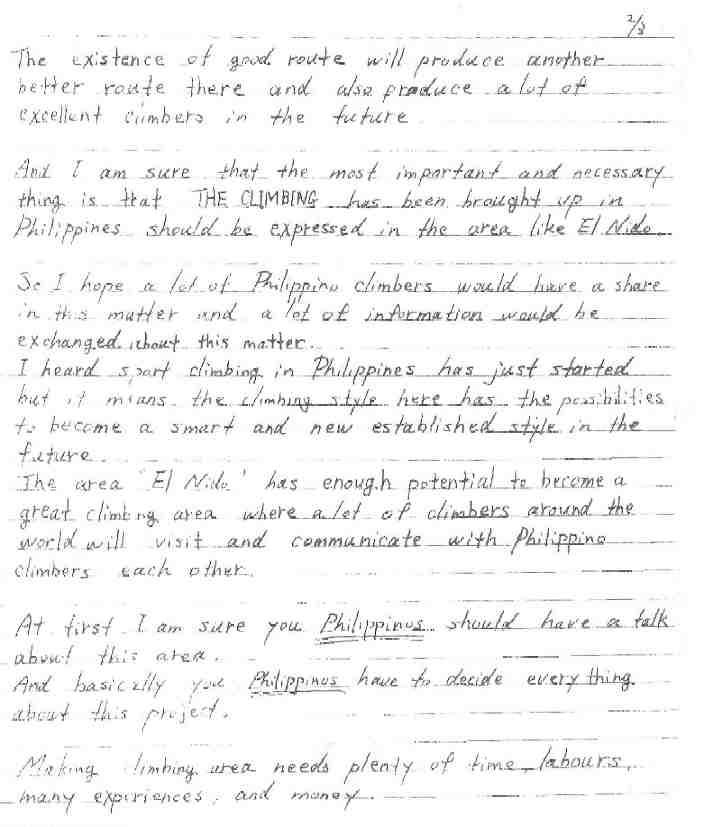 2/3
The existence of good route will produce another
better route there and also produce a lot of
excellent climbers in the future
And I am sure that the most important and necessary
thing is that THE CLIMBING has been brought up in
Philippines should be expressed in the area like El Nido.
So I hope a lot of Philippino climbers would have a share
in this matter and a lot of information would be
exchanged about this matter.
I heard sport climbing in Philippines has just started
but it means the climbing style here has the possibilities
to become a smart and new established style in the
future.
The area 'El Nido' has enough potential to become a
great climbing area where a lot of climbers around the
world will visit and communicate with Philippino
climbers each other.
At first I am sure you Philippinos should have a talk
about this area.
And basically you Philippinos have to decide everything
about this project.
Making climbing area needs plenty of time, labours,
many expiriences, and money.